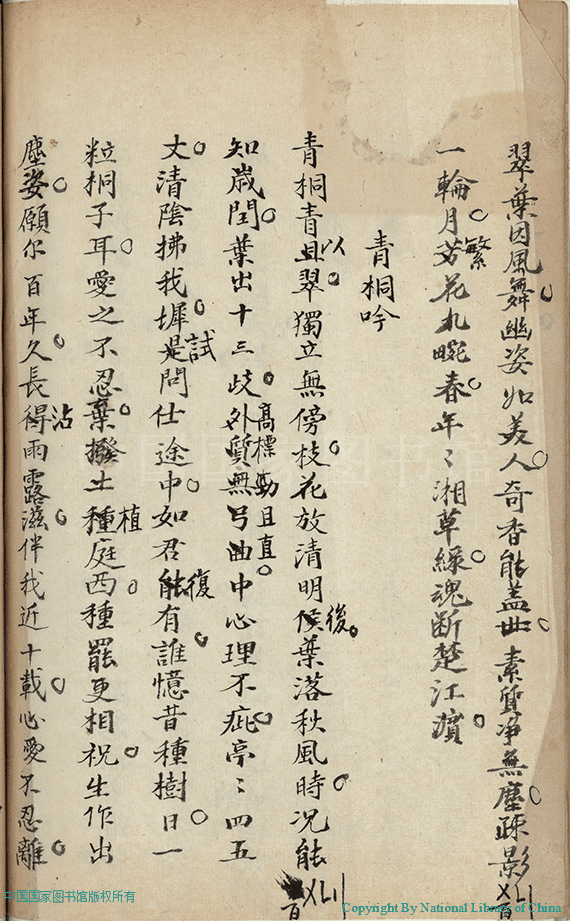 翠葉因風舞幽姿如美人奇香能盖世素質净無塵疎影
一輪月芳花九畹春年〻湘草綠魂斷楚江濱
繁
青桐吟
青桐青且翠獨立無傍枝花放清明候葉落秋風時况能
以
後
知歳閏葉出十三歧外質無弓曲中心理不疵亭〻四五
高標勁且直
丈清陰拂我墀是問仕途中如君能有誰憶昔種樹日一
試
復
粒桐子耳愛之不忍棄撥土種庭西種罷更相祝生作出
植
塵姿願尔百年久長得雨露滋伴我近十載心愛不忍離
沾
中国国家图书馆版权所有
Copyright By National Library of China